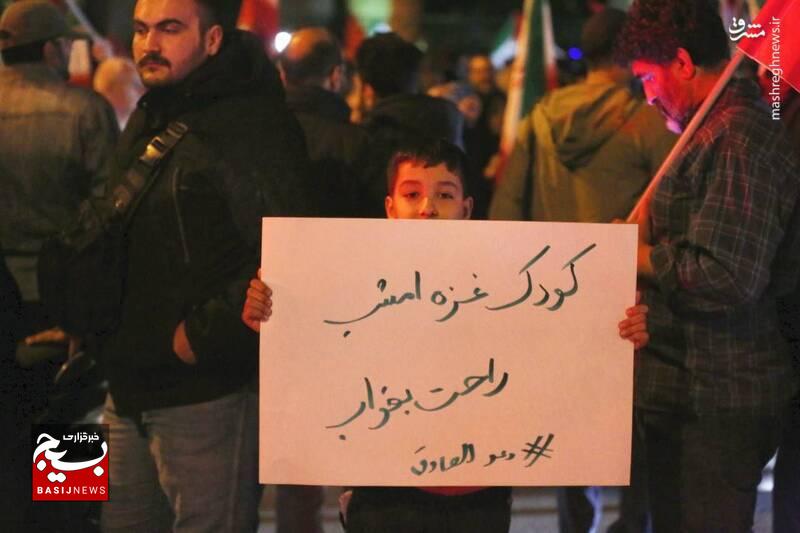 مشرق
mashreghnews.ir
کودک غزه امشب
راحت بخواب
#وعد الصادق
خبرگزاری
بسیج
BASIJNEWS